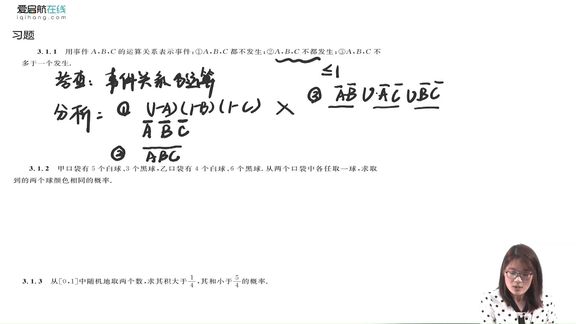 爱启航在线
iqihang.com
习题
3.1.1 用事件 A,B,C 的运算关系表示事件:①A,B,C 都不发生;②A,B,C 不都发生;③A,B,C 不
多于一个发生.
≤1
考查: 事件关系的运算
分析: ① (1-A)(1-B)(1-C) ×
A̅ B̅ C̅
③ A̅B̅ ∪ A̅C̅ ∪ B̅C̅
② \overline{ABC}
3.1.2 甲口袋有 5 个白球、3 个黑球,乙口袋有 4 个白球、6 个黑球. 从两个口袋中各任取一球,求取
到的两个球颜色相同的概率.
3.1.3 从[0,1]中随机地取两个数,求其积大于 1/4,其和小于 5/4 的概率.